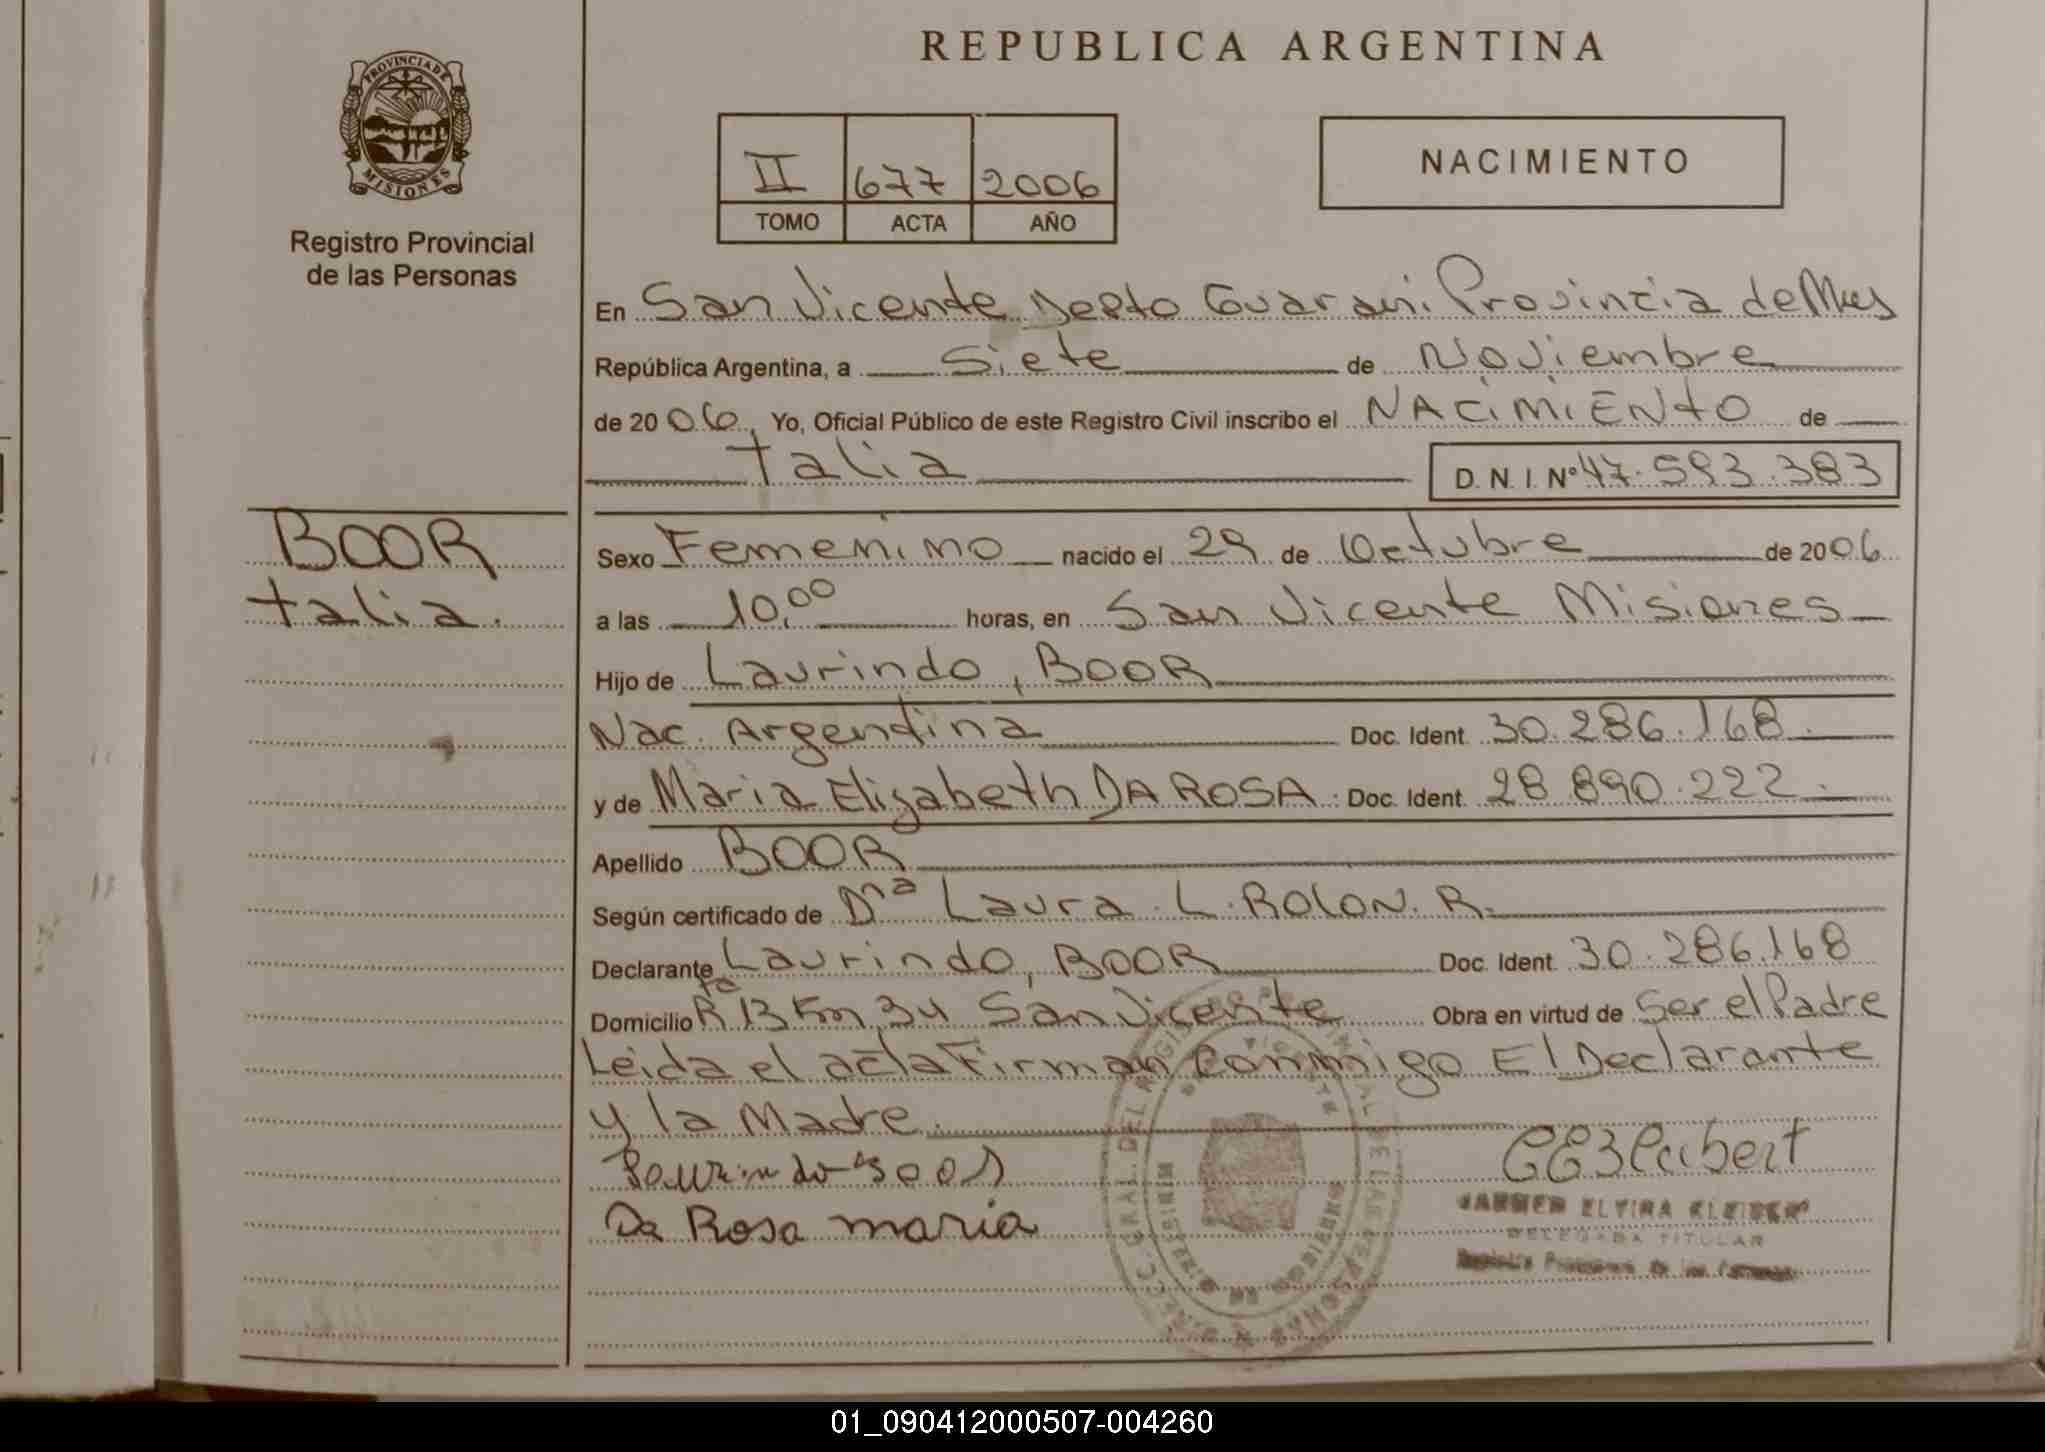 REPUBLICA ARGENTINA
PROVINCIA DE
MISIONES
Registro Provincial
de las Personas
II 677 2006
TOMO ACTA AÑO
NACIMIENTO
En San Vicente Depto Guarani. Provincia de Mnes
República Argentina, a Siete de Noviembre
de 2006, Yo, Oficial Público de este Registro Civil inscribo el NACIMIENTO de
Talia D. N. I. Nº 47.593.383
BOOR
Talia.
Sexo Femenino nacido el 29 de Octubre de 2006
a las 10,00 horas, en San Vicente Misiones
Hijo de Laurindo, BOOR
Nac. Argentina Doc. Ident. 30.286.168.
y de Maria Elizabeth DA ROSA. Doc. Ident. 28 890.222.
Apellido BOOR
Según certificado de Dra Laura. L. ROLON. R.
Declarante Laurindo, BOOR Doc. Ident. 30.286.168
Domicilio Rta 13 Km 34 San Vicente Obra en virtud de Ser el Padre
Leida el acta Firman Conmigo El Declarante
y la Madre.
Laurindo Boor
Da Rosa maria
DELEGADA TITULAR
Registro Provincial de las Personas
01_090412000507-004260